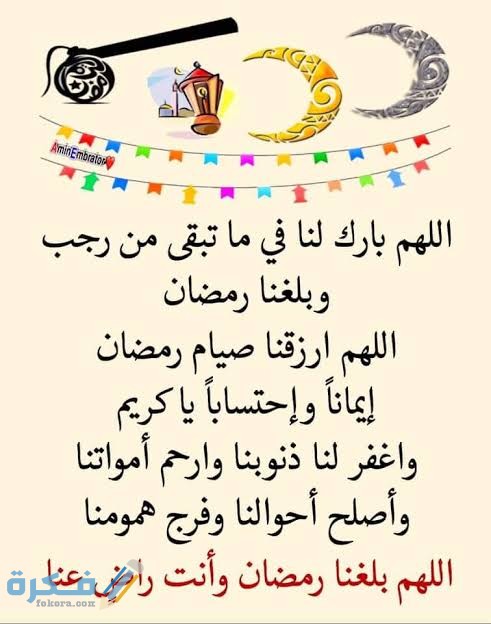 AminEmbrator
اللهم بارك لنا في ما تبقى من رجب
وبلغنا رمضان
اللهم ارزقنا صيام رمضان
إيماناً وإحتساباً يا كريم
واغفر لنا ذنوبنا وارحم أمواتنا
وأصلح أحوالنا وفرج همومنا
اللهم بلغنا رمضان وأنت راضٍ عنا
فكرة
fokora.com